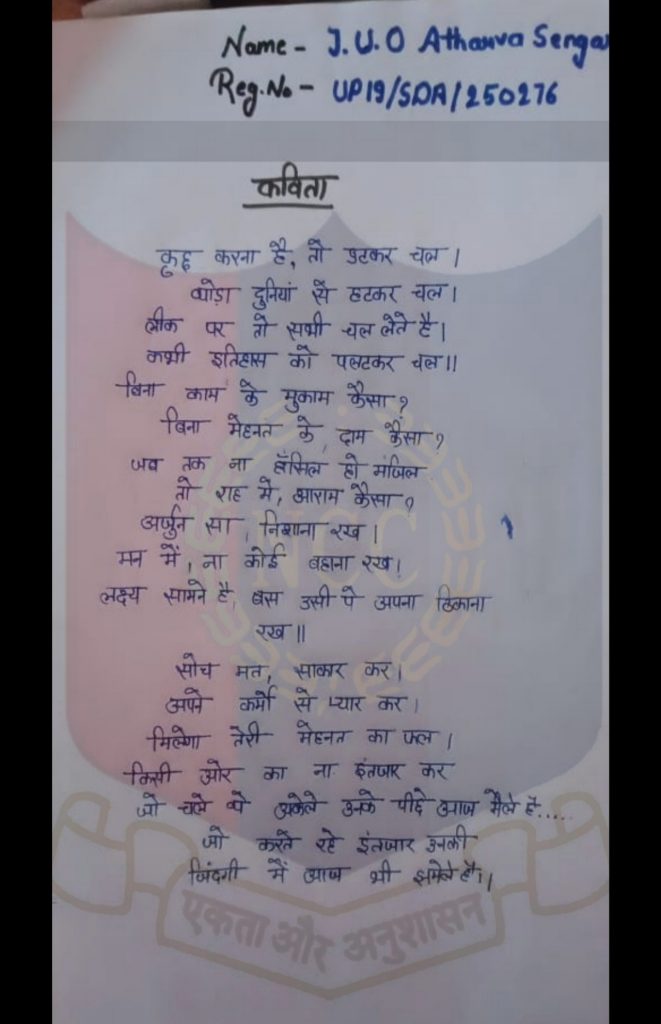 Name - J.U.O Atharva Sengar
Reg.No - UP19/SDA/250276
कविता
कुछ करना है, तो डटकर चल।
थोड़ा दुनियां से हटकर चल।
लीक पर तो सभी चल लेते है।
कभी इतिहास को पलटकर चल॥
बिना काम के मुकाम कैसा?
बिना मेहनत के, दाम कैसा?
जब तक ना हाँसिल हो मंजिल
तो राह मे, आराम कैसा?
अर्जुन सा, निशाना रख।
मन में, ना कोई बहाना रख।
लक्ष्य सामने है, बस उसी पे अपना ठिकाना
रख॥
सोच मत, साकार कर।
अपने कर्मो से प्यार कर।
मिलेगा तेरी मेहनत का फल।
किसी ओर का ना इंतजार कर
जो चले थे अकेले उनके पीछे आज मेले है.....
जो करते रहे इंतजार उनकी
जिंदगी में आज भी झमेले है।।
NCC
एकता और अनुशासन